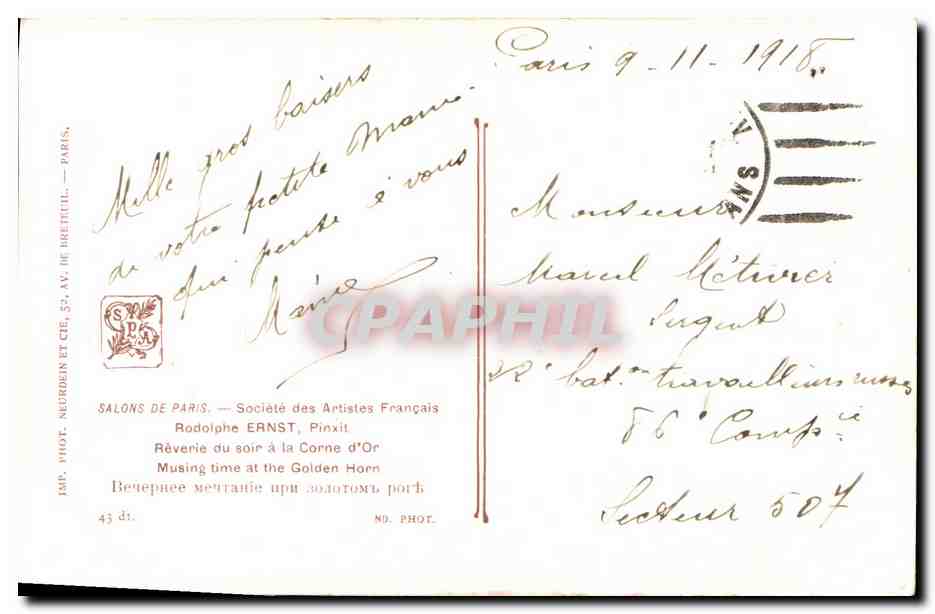 Paris 9-11-1918
Mille gros baisers
de votre petite Mame
qui pense à vous
Monsieur
Marcel Métivier
Sergent
22e bat.on travailleurs russes
86e Comp.ie
Secteur 507
CPAPHIL
SALONS DE PARIS. — Société des Artistes Français
Rodolphe ERNST, Pinxit
Rêverie du soir à la Corne d'Or
Musing time at the Golden Horn
Вечернее мечтаніе при золотомъ рогѣ
43 dt.
ND. PHOT.
IMP. PHOT. NEURDEIN ET CIE, 52, AV. DE BRETEUIL. — PARIS.